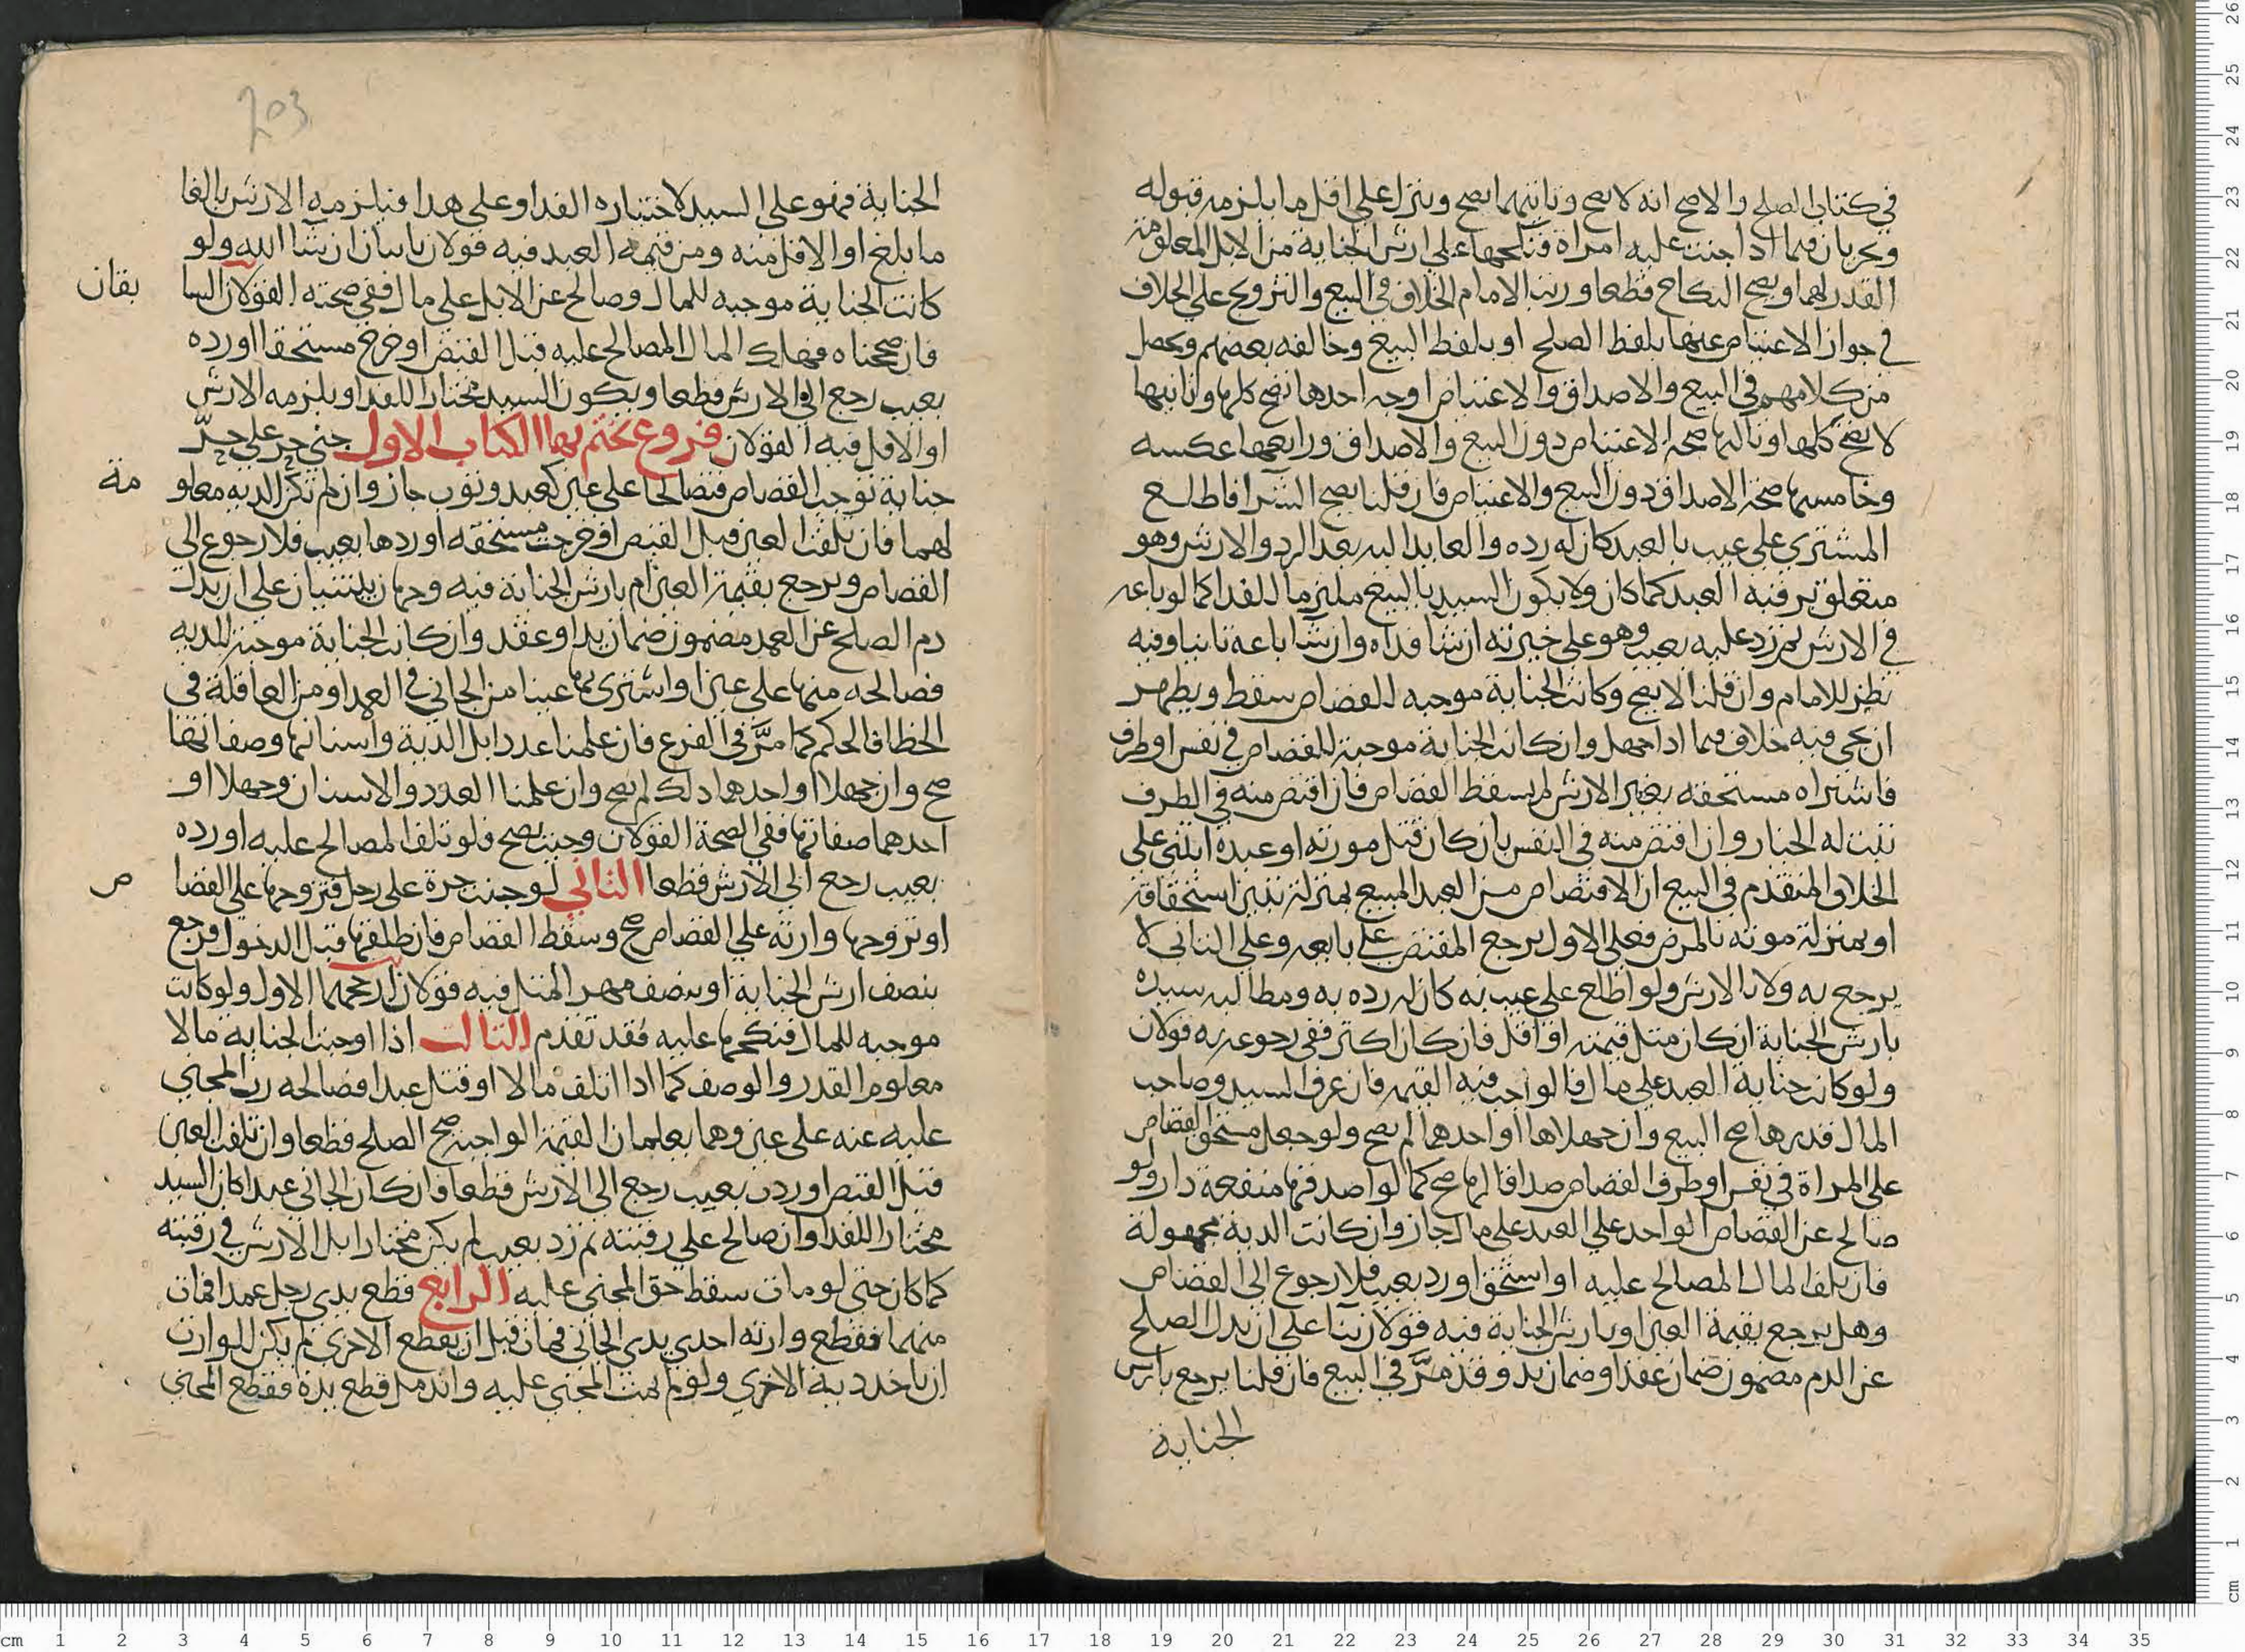 في كتاب الصلح والاصح انه لا يصح وثانيهما يصح وينزل على اقل ما يلزمه قبوله
ويجريان فيما اذا جنت عليه امراة فنكحها على ارش الجناية من الابل المعلومة
القدر لهما ويصح النكاح قطعا ورتب الامام الخلاف في البيع والتزويج على الخلاف
في جواز الاعتياض عنها بلفظ الصلح او بلفظ البيع وخالفه بعضهم ويحصل
من كلامهم في البيع والاصداق والاعتياض اوجه احدها تصح كلها وثانيها
لا تصح كلها وثالثها صحة الاعتياض دون البيع والاصداق ورابعها عكسه
وخامسها صحة الاصداق دون البيع والاعتياض فان قلنا يصح الشرا فاطلع
المشتري على عيب بالعبد كان له رده والعايد اليه بعد الرد والارش وهو
متعلق برقبة العبد كما كان ولا يكون السيد بالبيع ملتزما للفدا كما لو باعه
في الارش ثم رد عليه بعيب وهو على خيرته ان شا فداه وان شا باعه ثانيا وفيه
نظر للامام وان قلنا لا يصح وكانت الجناية موجبه للقصاص سقط ويظهر
ان يجي فيه خلاف فيما اذا جهل وان كانت الجناية موجبة للقصاص في نفس او طرف
فاشتراه مستحقه بغير الارش لم يسقط القصاص فان اقتص منه في الطرف
ثبت له الخيار وان اقتص منه في النفس بان كان قتل مورثه او عبده ابتني على
الخلاف المتقدم في البيع ان الاقتصاص من العبد المبيع بمنزلة تبين استحقاقه
او بمنزلة موته بالمرض فعلى الاول يرجع المقتص على بايعه وعلى الثاني لا
يرجع به ولا بالارش ولو اطلع على عيب به كان له رده به ومطالبه سيده
بارش الجناية ان كان مثل قيمته او اقل فان كان اكثر ففي رجوعه به قولان
ولو كان جناية العبد على مال فالواجب فيه القيمه فان عرف السيد وصاحب
المال قدرها صح البيع وان جهلاها او احدهما لم يصح ولو جعل مستحق القصاص
على المراة في نفس او طرف القصاص صداقا لها صح كما لو اصدقها منفعة دار ولو
صالح عن القصاص الواحد على العبد على مال جاز وان كانت الدية مجهولة
فان تلف المال المصالح عليه او استحق او رد بعيب فلا رجوع الى القصاص
وهل يرجع بقيمة العين او بارش الجناية فيه قولان بنا على ان بدل الصلح
عن الدم مضمون ضمان عقد او ضمان يد وقد مرَّ في البيع فان قلنا يرجع بارش
الجناية
الجناية فهو على السيد لاختياره الفدا وعلى هذا فيلزمه الارش بالغا
ما بلغ او الاقل منه ومن قيمة العبد فيه قولان ياتيان ان شا الله ولو
كانت الجناية موجبه للمال وصالح عن الابل على مال ففي صحته القولان السا بقان
فان صححناه فهلك المال المصالح عليه قبل القبض او خرج مستحقا او رده
بعيب رجع الى الارش قطعا ويكون السيد مختارا للفدا ويلزمه الارش
او الاقل فيه القولان فروع نختم بها الكتاب الاول جنى حر على حرّ
جناية توجب القصاص فتصالحا على عين كعبد وثوب جاز وان لم تكن الديه معلو مة
لهما فان تلفت العين قبل القبض او خرجت مستحقه او ردها بعيب فلا رجوع الى
القصاص ويرجع بقيمة العين ام بارش الجناية فيه وجهان يبتنيان على ان بدل
دم الصلح عن العمد مضمون ضمان يد او عقد وان كانت الجناية موجبة للديه
فصالحه منها على عين او اشترى بها عينا من الجاني في العمد او من العاقلة في
الخطا فالحكم كما مرَّ في الفرع فان علمنا عدد ابل الدية واسنانها وصفاتها
صح وان جهلا او احدهما ذلك لم يصح وان علمنا العدد والاسنان وجهلا او
احدهما صفاتها ففي الصحة القولان وحيث يصح فلو تلف المصالح عليه او رده
بعيب رجع الى الارش قطعا الثاني لو جنت حرة على رجل فتزوجها على القصا ص
او تزوجها وارثه على القصاص صح وسقط القصاص فان طلقها قبل الدخول فرجع
بنصف ارش الجناية او بنصف مهر المثل فيه قولان ارجحهما الاول ولو كانت
موجبه للمال فنكحها عليه فقد تقدم الثالث اذا اوجبت الجناية مالا
معلوم القدر والوصف كما اذا اتلف مالا او قتل عبدا فصالحه رب المجني
عليه عنه على عين وهما يعلمان القيمة الواجبة صح الصلح قطعا وان تلفت العين
قبل القبض او ردت بعيب رجع الى الارش قطعا وان كان الجاني عبدا كان السيد
مختارا للفدا وان صالح على رقبته ثم رد بعيب لم يكن مختارا بل الارش في رقبته
كما كان حتى لو مات سقط حق المجني عليه الرابع قطع يدي رجل عمدا فمات
منهما فقطع وارثه احدى يدي الجاني فمات قبل ان يقطع الاخرى لم يكن للوارث
ان ياخذ دية الاخرى ولو لم يمت المجني عليه واندمل قطع يده فقطع المجني